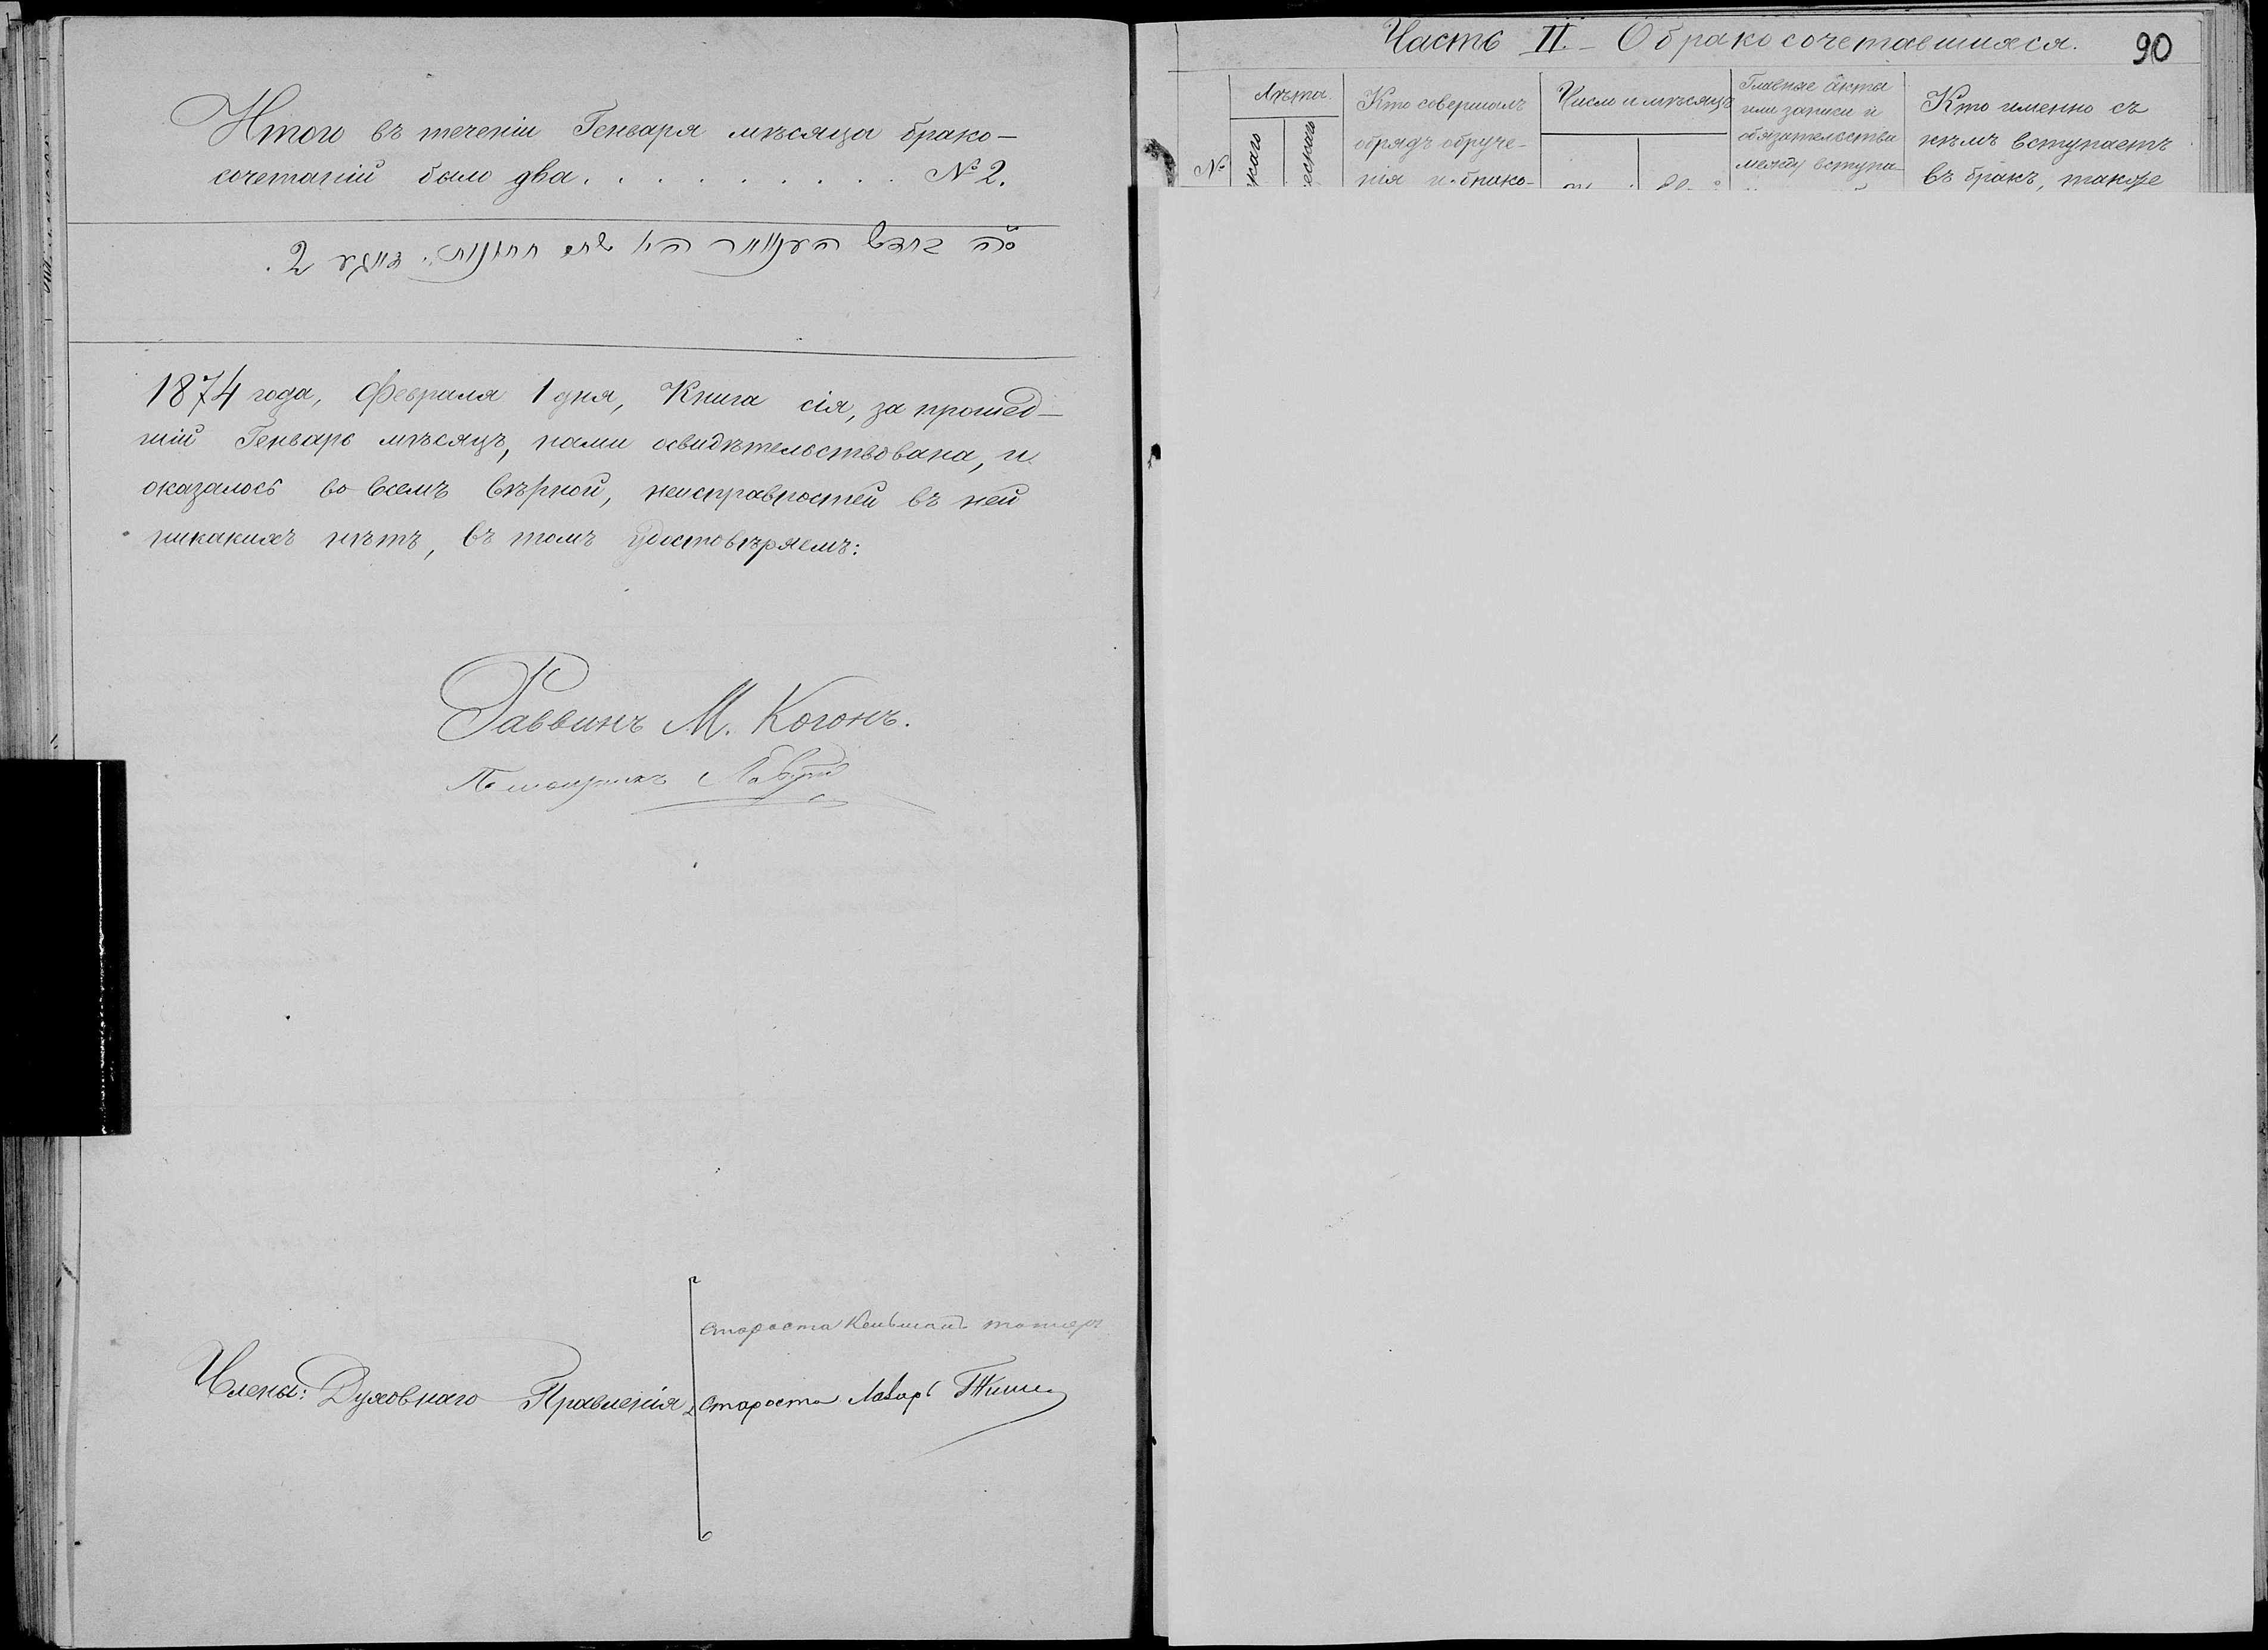 Итого въ теченіи Генваря мѣсяца брако-
сочетаній было два . . . . . . . . . № 2.
בחדש יענואר היו שתי חתונות. 2.
1874 года, Февраля 1 дня, Книга сія, за прошед-
шій Генварь мѣсяцъ, нами освидѣтельствована, и
оказалось во всемъ вѣрной, неисправностей въ ней
никакихъ нѣтъ, въ томъ удостовѣряемъ:
Раввинъ М. Когонъ.
Помощникъ
Староста
Члены: Духовнаго Правленія
Староста Лаваръ
Часть II. – О бракосочетавшихся.
90
№
Лѣта.
скаго
ескаго
Кто совершалъ
обрядъ обруче-
нія и брако-
Число и мѣсяцъ
Главные акты
или записи и
обязательства
между вступа-
Кто именно съ
кѣмъ вступаетъ
въ бракъ, также